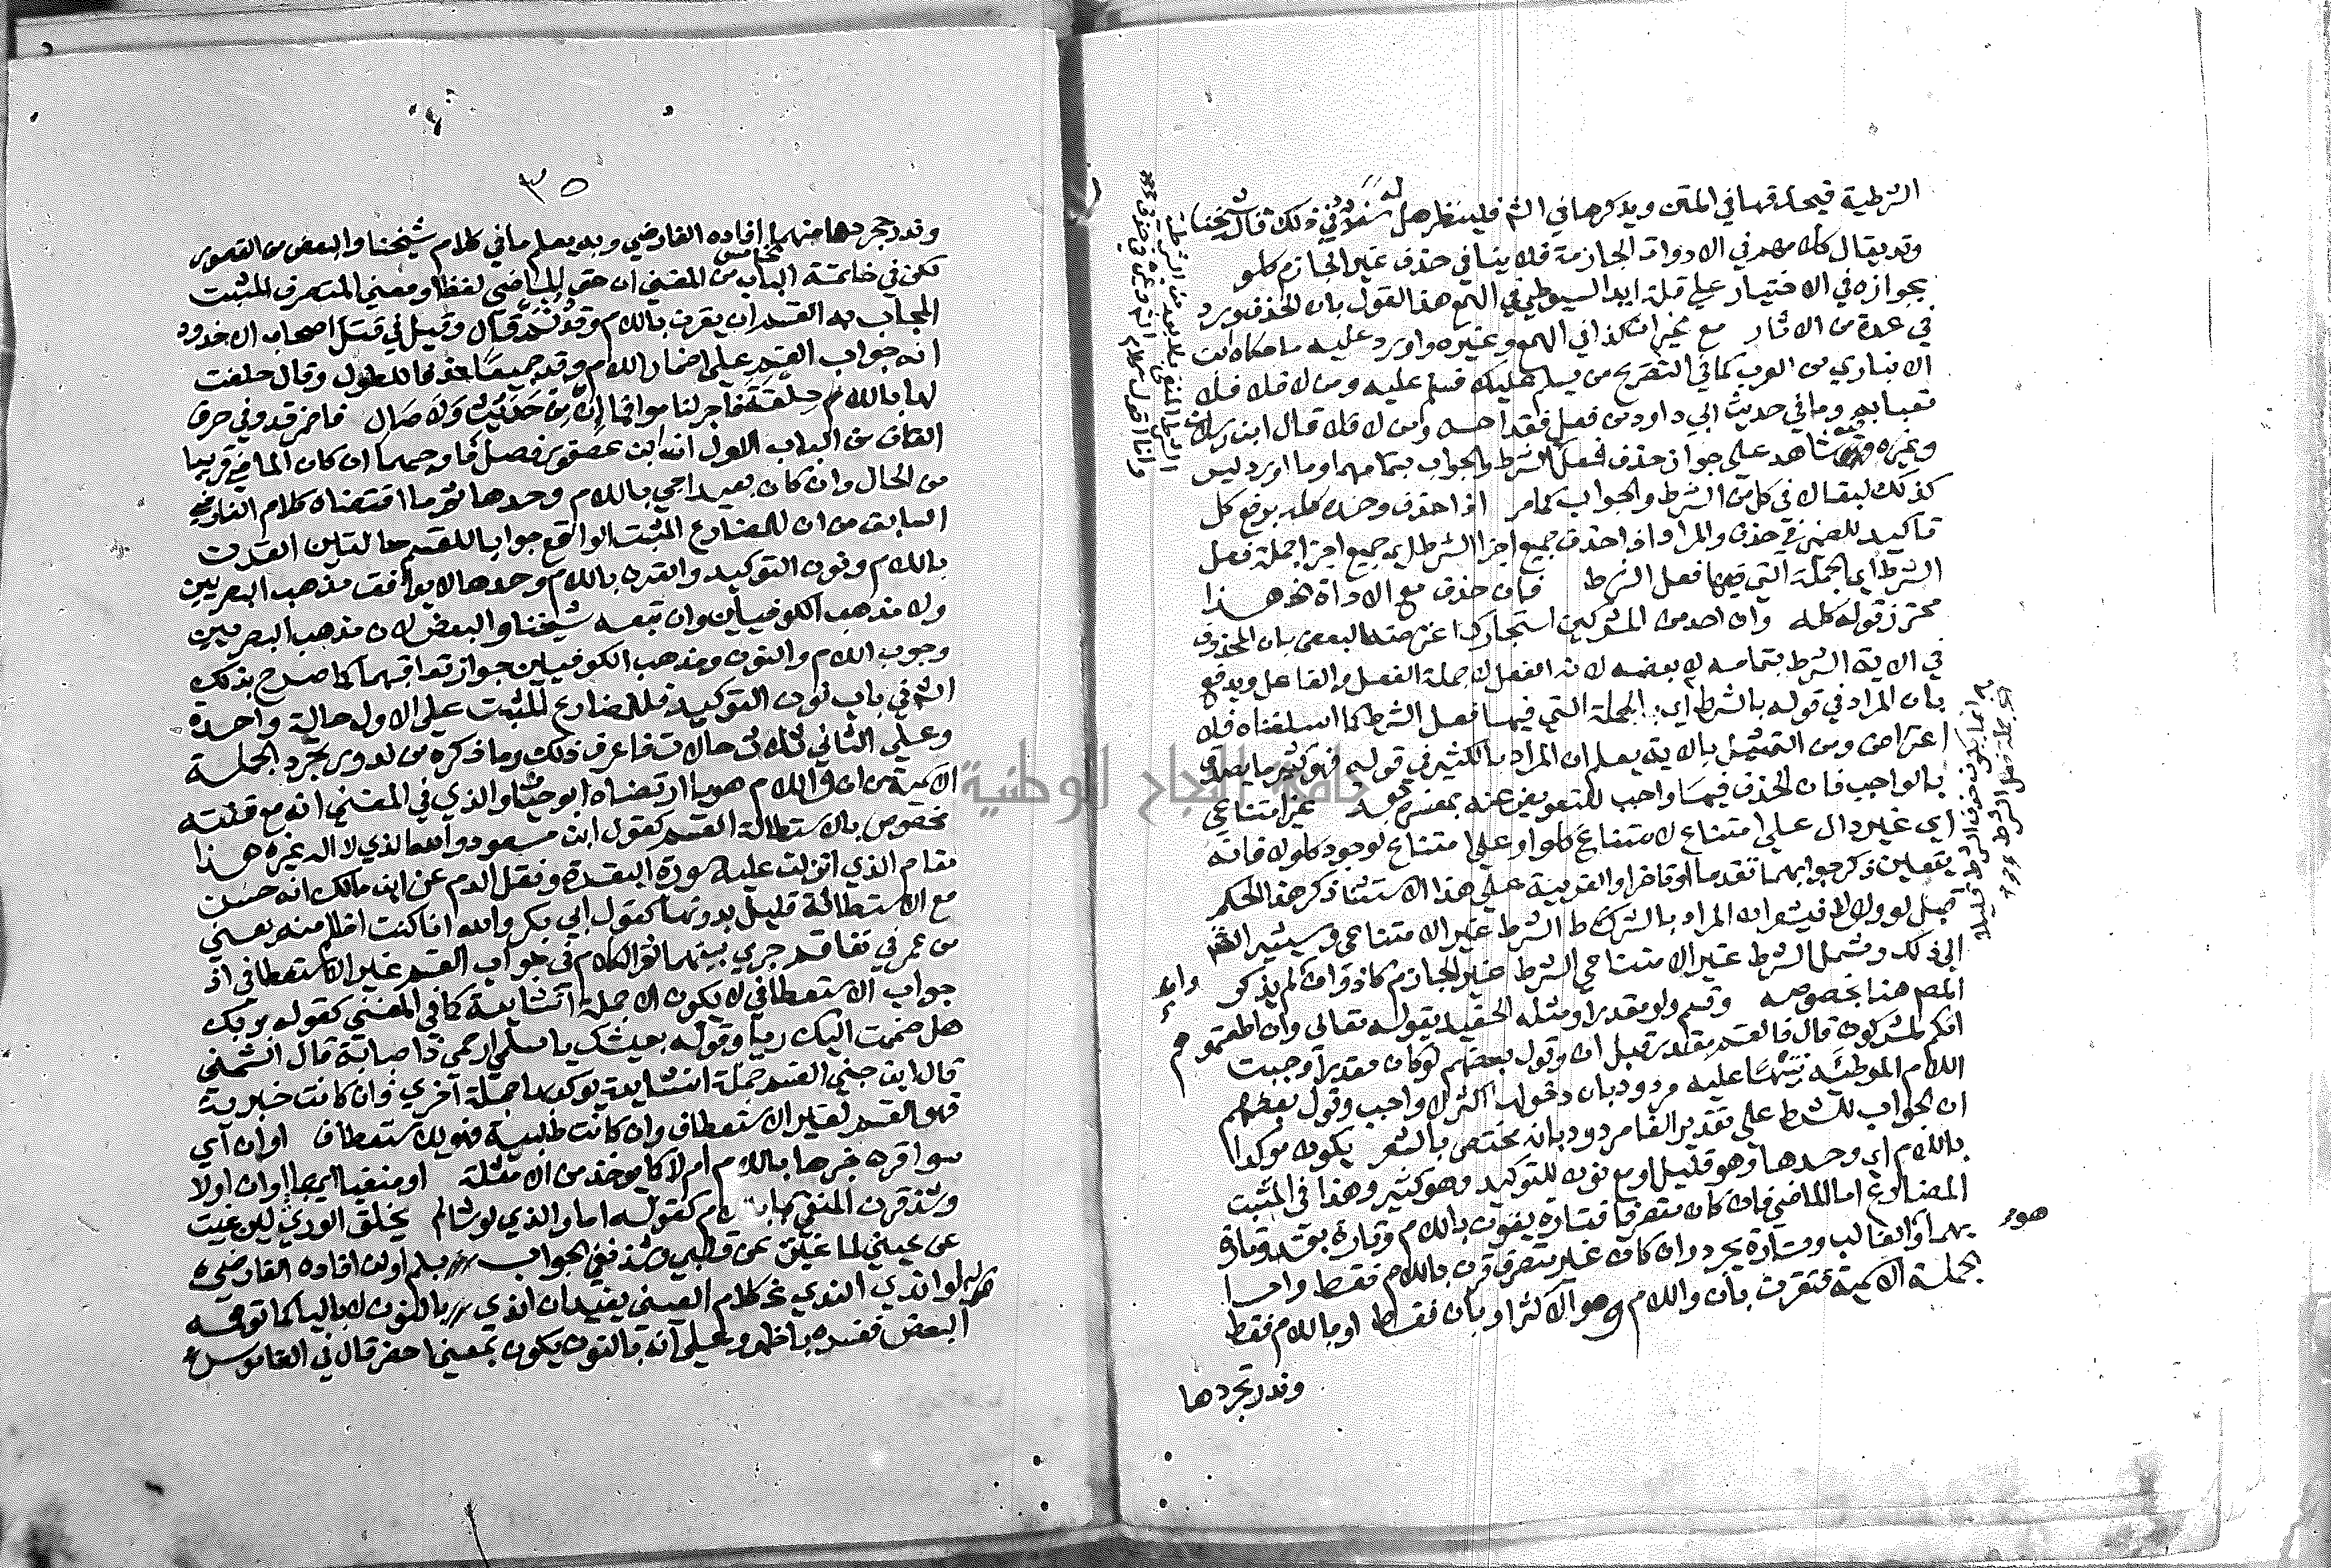 الشرطية فيحذفها في المتن ويذكرها في الش فلينظر هل له سلف في ذلك قال شيخنا
وقد يقال كلامهم في الادوات الجازمة فلا ينافي حذف غير الجازم كلو
بجوازه في الاختيار علي قلة ايد السيوطي في الهمع هذا القول بان الحذف ورد
في عدة من الاثار مع غير ان كذا في الهمع وغيره واورد عليه ما حكاه ابن
الانباري من العرب كما في التصريح من يسلم عليك فسلم عليه ومن لا فلا فلا
تعبا به وما في حديث ابي داود من فعل فقد احسن ومن لا فلا قال ابن رسلان
وغيره فهو شاهد علي جواز حذف فعل الشرط والجواب بتمامهما وما اورد ليس
كذلك لبقا لا في كل من الشرط والجواب كما مر اذا حذف وحده كله برفع كل
تاكيد للضمير في حذف والمراد اذا حذف جميع اجزا الشرط اي جميع اجزا جملة فعل
الشرط اي الجملة التي فيها فعل الشرط فان حذف مع الاداة الخ هذا
محترز قوله كله وان احد من المشركين استجارك اعترضه البعض بان المحذوف
في الاية الشرط بتمامه لا بعضه لانه الفعل لا جملة الفعل والفاعل ويدفع
بان المراد في قوله بالشرط اي الجملة التي فيها فعل الشرط كما اسلفناه فلا
اعتراض ومن التمثيل بالاية يعلم ان المراد بالكثير في قوله فهو كثير ما يصدق
بالواجب فان الحذف فيها واجب للتعويض عنه بمفسر بعده غير امتناعي
اي غير دال علي امتناع لامتناع كلو او علي امتناع لوجود كلولا فانه
يتعين ذكر جوابهما تقدما او تاخرا والقرينة علي هذا الاستثنا ذكر هذا الحكم
قبل لو ولولا فيشعر بان المراد بالشرط الشرط غير الامتناعي وسيشير الش
الي ذلك وشمل الشرط غير الامتناعي الشرط غير الجازم كاذا وان لم يذكر
المص هذا بخصوصه وقسم ولو مقدرا ومثله الحفيد بقوله تعالي وان اطعتموهم
انكم لمشركون قال فالقسم مقدر قبل ان وقول بعضهم لو كان مقدرا وجبت
اللام الموطئة تنبيها عليه مردود بان دخولها اكثر لا واجب وقول بعضهم
ان الجواب للشرط علي تقدير الفا مردود بانه يختص بالشعر يكون موكدا
باللام اي وحدها وهو قليل او مع نون للتوكيد وهو كثير وهذا في المثبت
المضارع اما الماضي فان كان متصرفا فتارة يقرن باللام وتارة بقد وتارة
بهما وهو الغالب وتارة يجرد وان كان غير متصرف قرن باللام فقط واما
الجملة الاسمية فتقرن بان واللام وهو الاكثر او بان فقط او باللام فقط
وندر تجردها
٣٥
وندر تجردها منهما افاده الفارضي وبه يعلم ما في كلام شيخنا والبعض من القصور
لكن في خاتمة الباب الخامس من المغني ان حق الماضي لفظا ومعني المتصرف المثبت
المجاب به القسم ان يقرن باللام وقد نحو وقد قال وقيل في قتل اصحاب الاخدود
انه جواب القسم علي اضمار اللام وقد جميعا حذفا للطول وقال حلفت
لها بالله حلفة فاجر لناموا فما ان من حديث ولا صال فاضمر قد وفي حرف
القاف من الباب الاول ان ابن عصفور فصل فاوجبهما ان كان الماضي قريبا
من الحال وان كان بعيدا جي باللام وحدها ثم ما اقتضاه كلام الفارضي
السابق من ان للمضارع المثبت الواقع جوابا للقسم حالتين القرن
باللام ونون التوكيد والقرن باللام وحدها لا يوافق مذهب البصريين
ولا مذهب الكوفيين وان تبعه شيخنا والبعض لان مذهب البصريين
وجوب اللام والنون ومذهب الكوفيين جواز تعاقبهما كما صرح بذلك
الش في باب نون التوكيد فللمضارع المثبت علي الاول حالة واحدة
وعلي الثاني ثلاث حالات فاعرف ذلك وما ذكره من ندور تجرد الجملة
الاسمية من ان واللام هو ما ارتضاه ابو حيان والذي في المغني انه مع قلته
مخصوص بالاستطالة القسم كقول ابن مسعود والله الذي لا اله غيره هذا
مقام الذي انزلت عليه سورة البقرة ونقل الدم عن ابن مالك انه حسن
مع الاستطالة قليل بدونها كقول ابي بكر والله انا كنت اظلم منه يعني
من عمر في تفاقد جري بينهما ثم الكلام في جواب القسم غير الاستعطافي اذ
جواب الاستعطافي لا يكون الا جملة انشايية كما في المغني كقوله بربك
هل ضممت اليك ريا وقوله بعيشك يا سلمي ارحمي ذا صبابة قال الشمني
قال ابن جني القسم جملة انشايية يوكد بها جملة اخري فان كانت خبرية
فهو القسم لغير الاستعطاف وان كانت طلبية فهو للاستعطاف او ان اي
سوا قرن خبرها باللام ام لا كما يوخذ من الامثلة او منفيا اي بما او ان او لا
وشذ قرن المنفي بما باللام كقوله اما والذي لو شا لم يخلق الوري لين غبت
عن عيني لما غبت عن قلبي وشذ نفي الجواب بلم او لن افاده الفارضي
قوله لو اندي الندي ... كلام العيني يفيد ان اندي بالنون لا باليا كما توهمه
البعض ففسره باظهر وعلي انه بالنون يكون بمعني احضر قال في القاموس